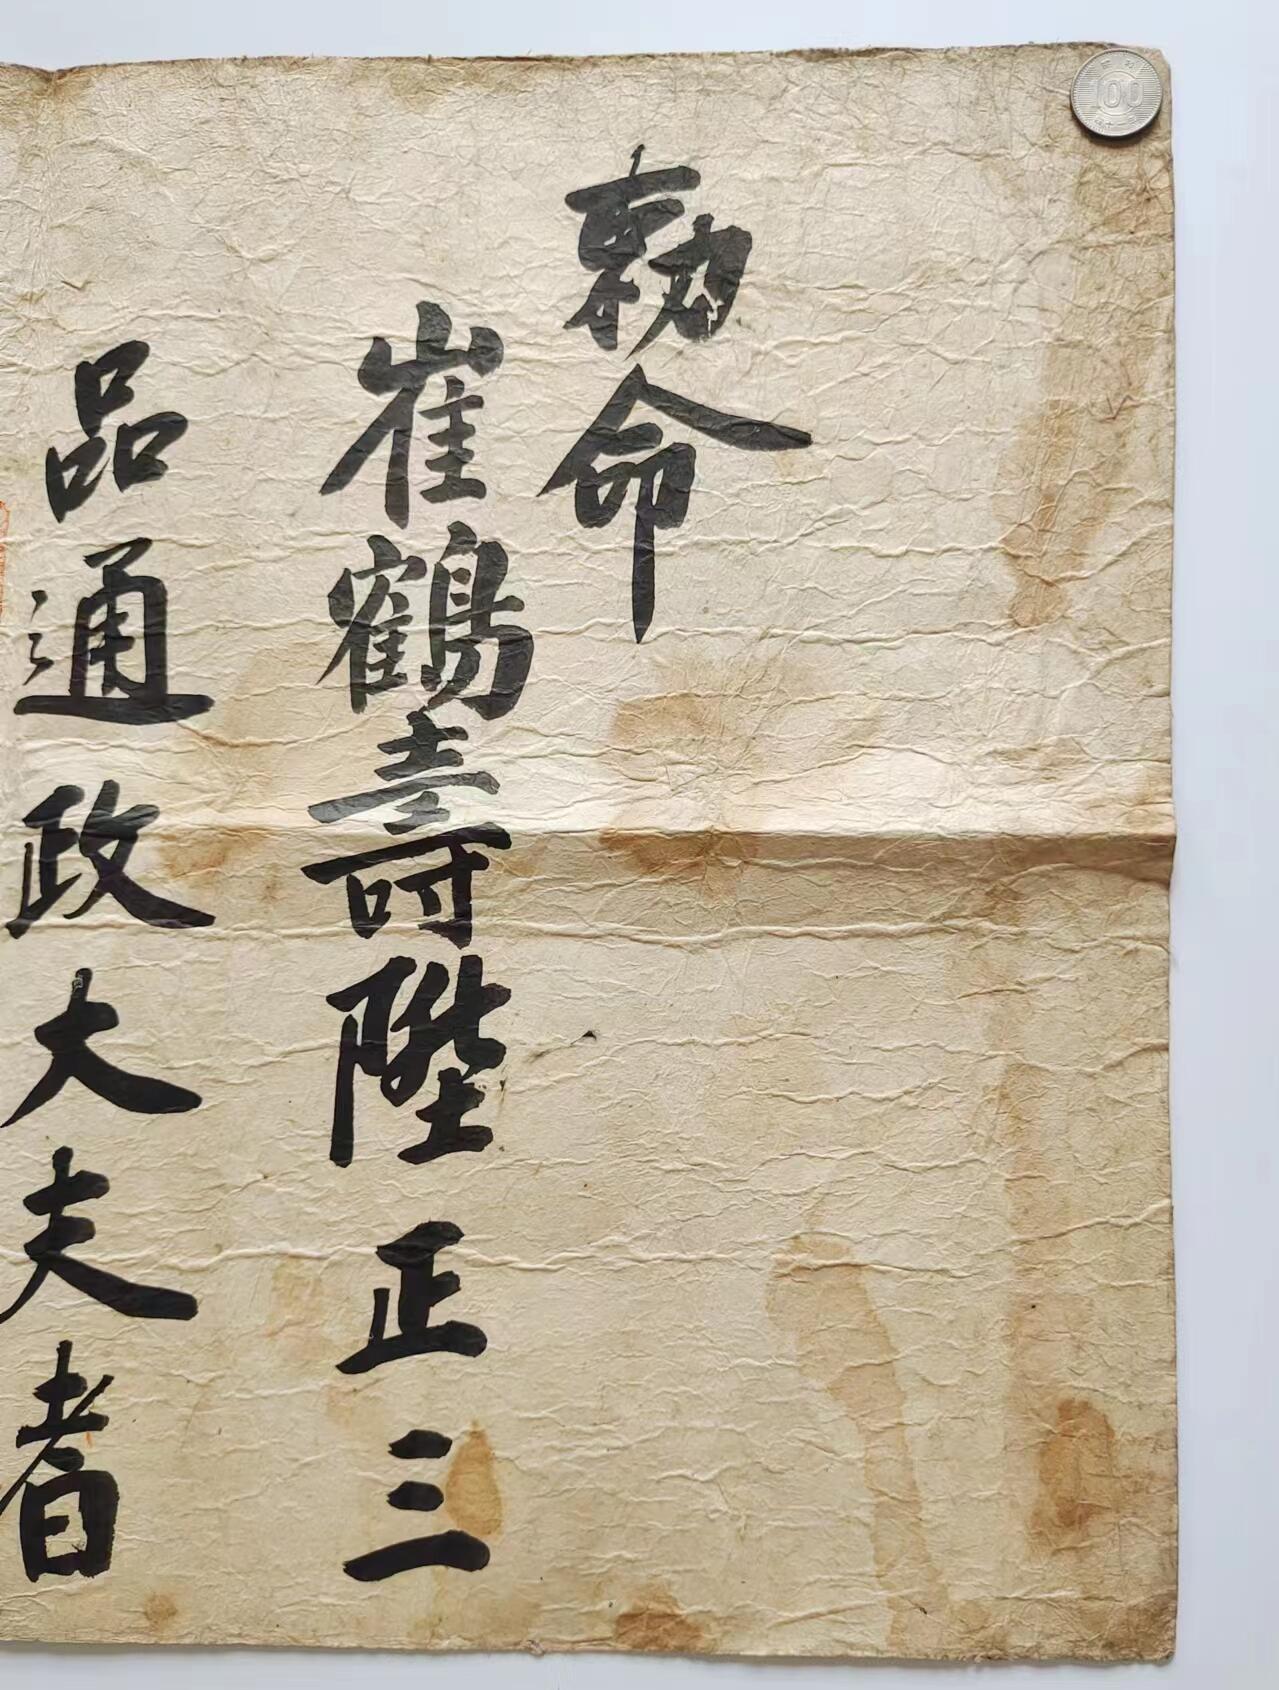 勅命
崔鶴壽陞正三
品通政大夫者
100